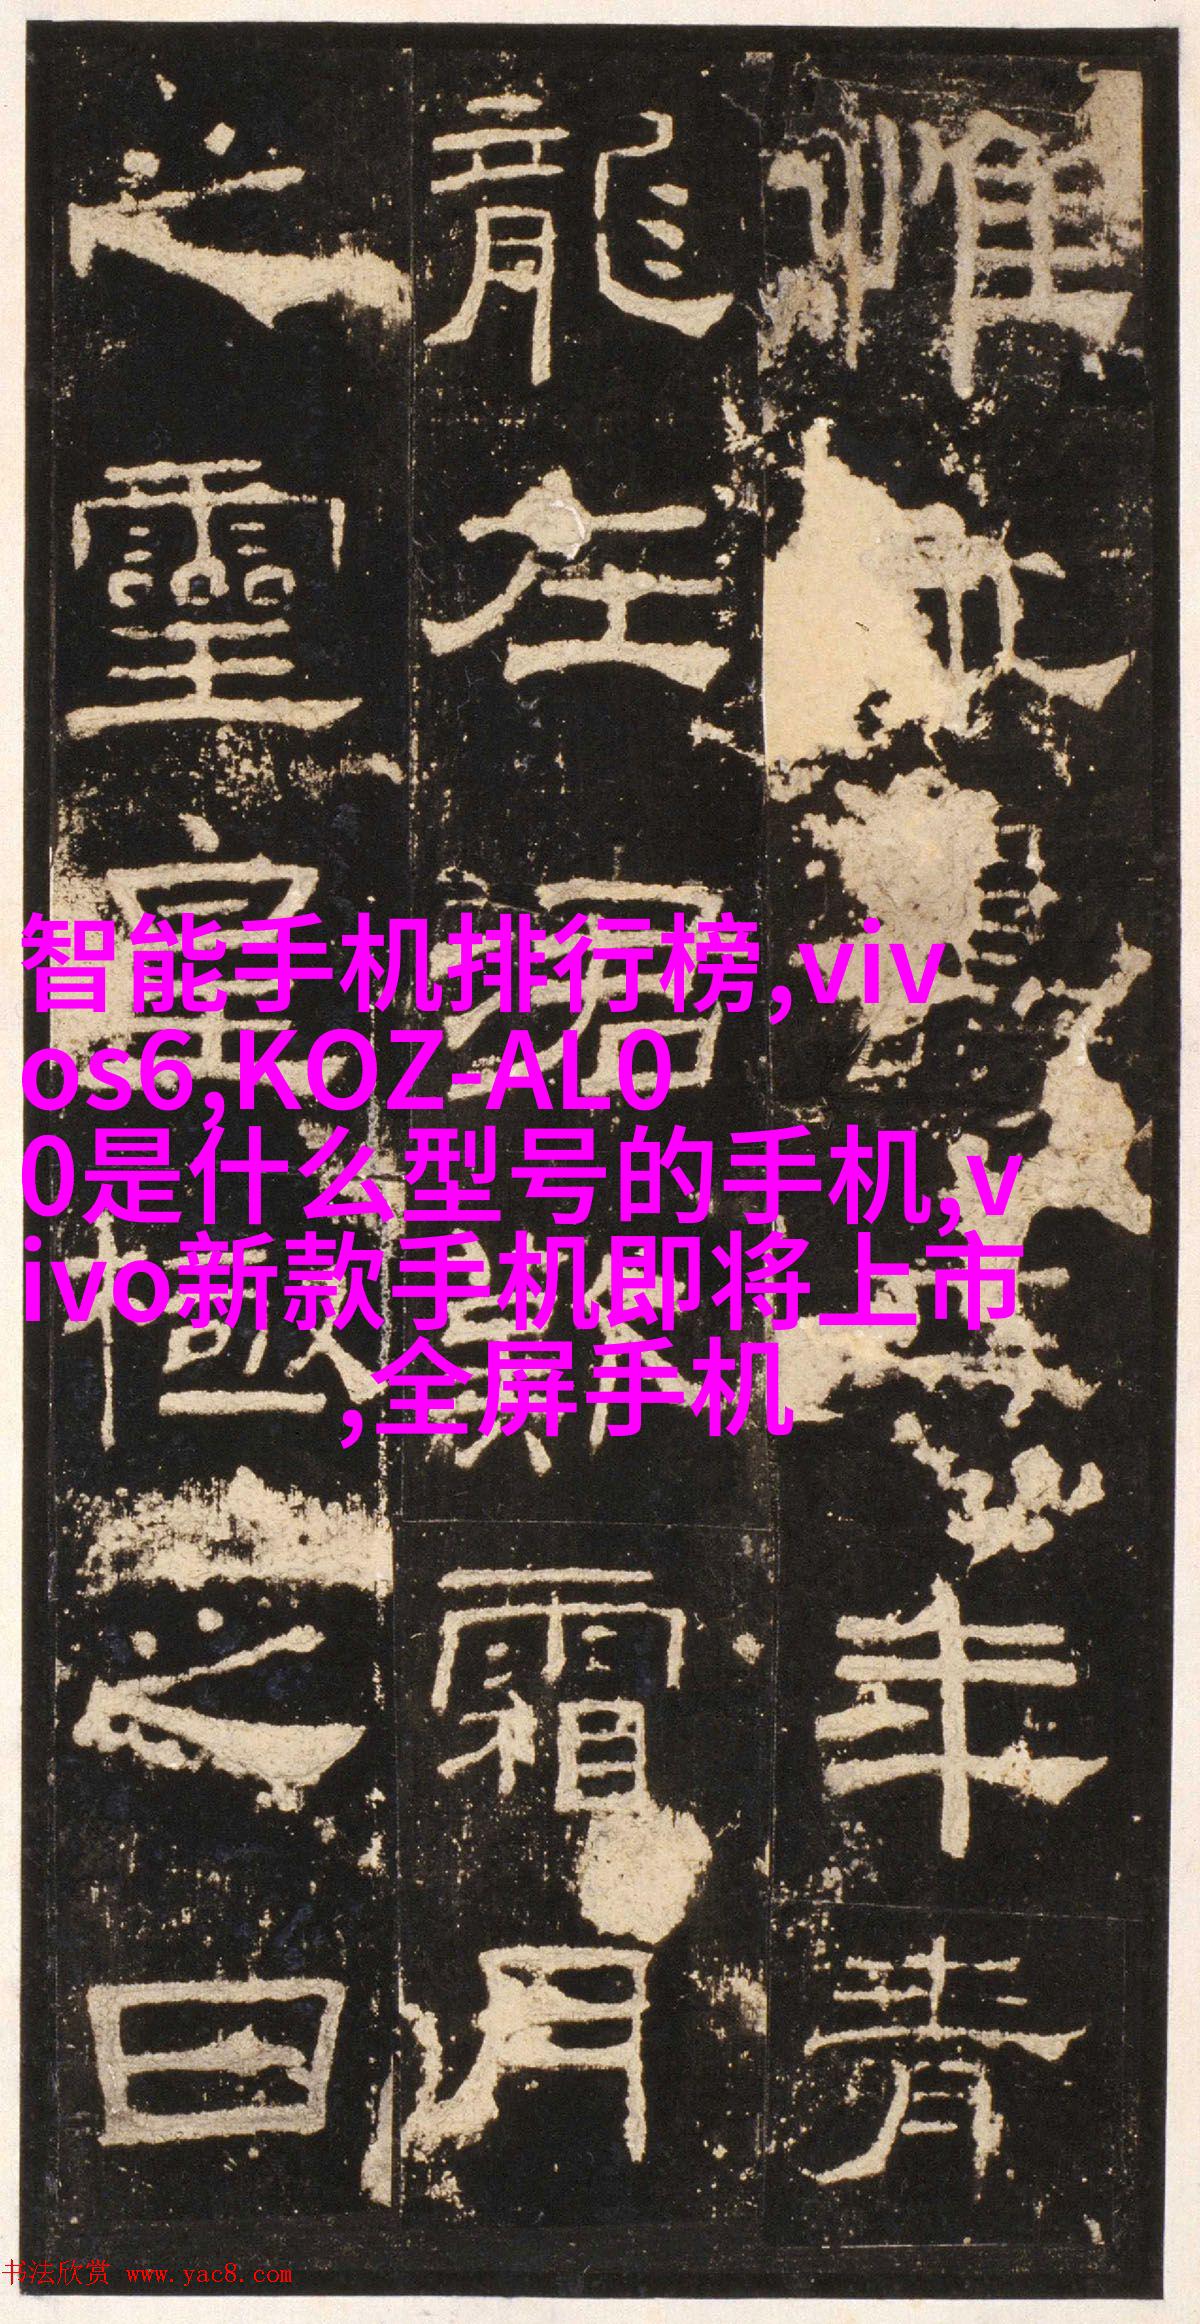 惟年青
龍在涒歎霜月
之靈皇極之日
智能手机排行榜,viv
os6,KOZ-AL0
0是什么型号的手机,v
ivo新款手机即将上市
,全屏手机
书法欣赏 www.yac8.com